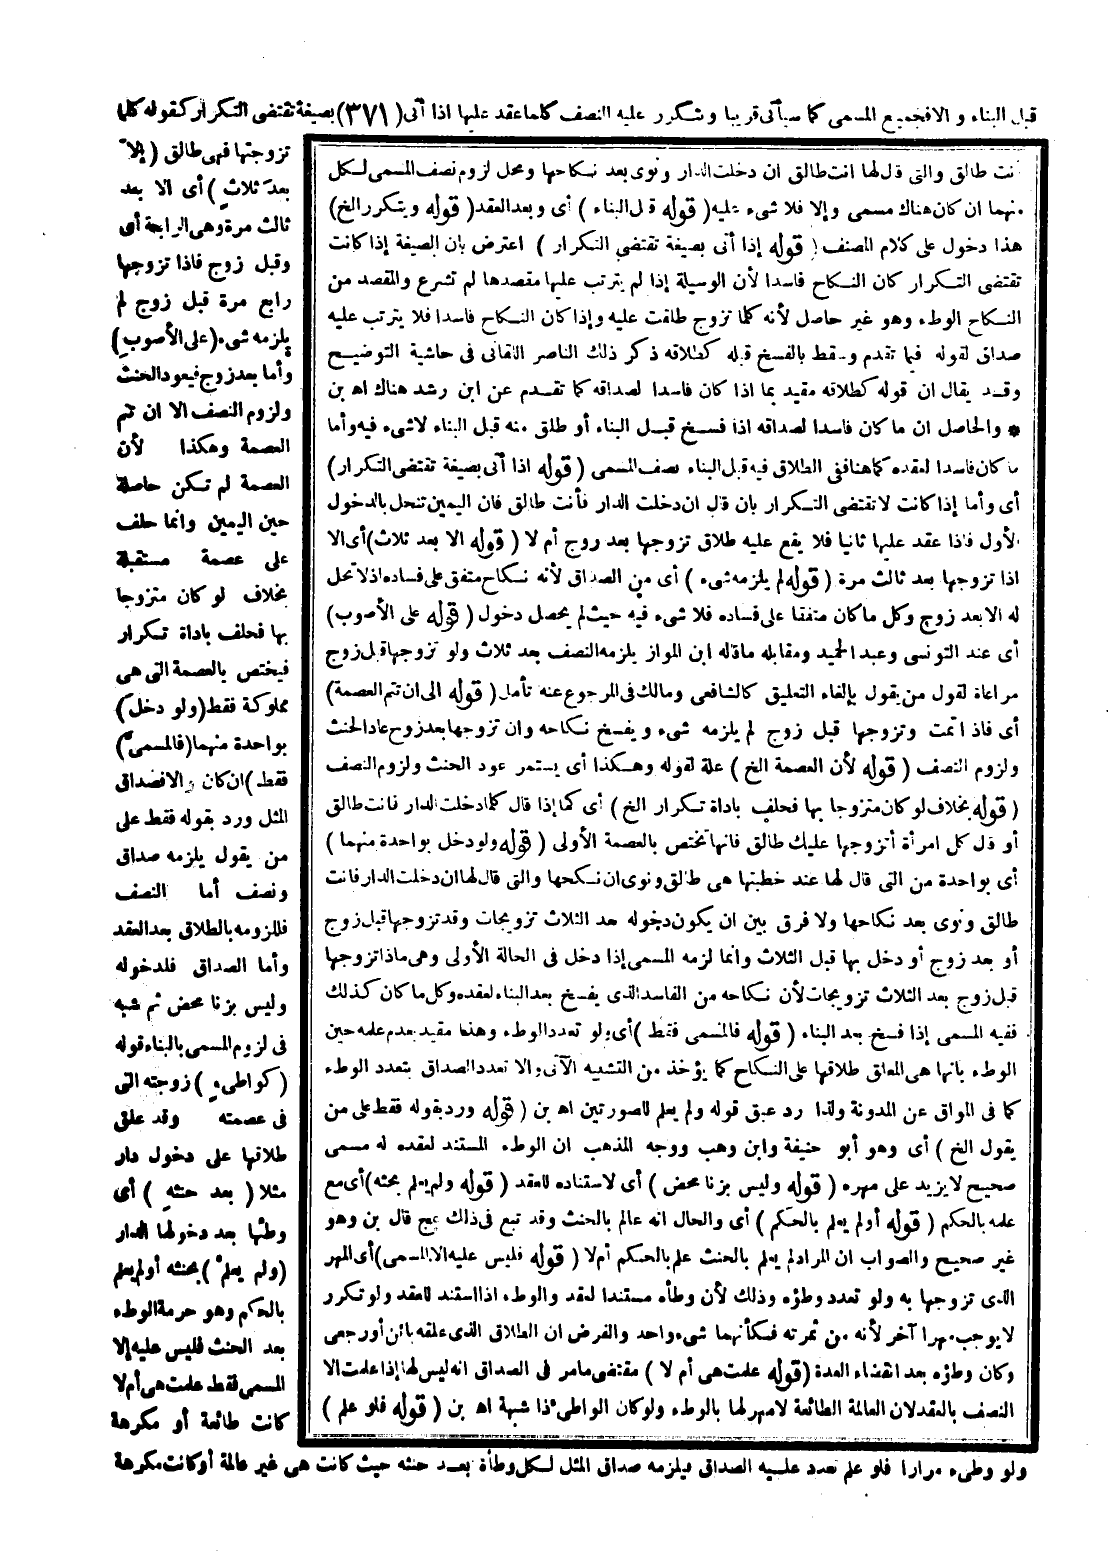 قبل البناء و الافجميع المسمى كما سيأتى قريبا و شكرر عليه النصف كلما عقد عليها اذا أتى (٣٧١) بصيغة تقتضى التكرار كقوله كلما
تزوجتها فهى طالق (إلا
بعد ثلاث) أى الا بعد
ثالث مرة وهى الرابعة أى
وقبل زوج فاذا تزوجها
رابع مرة قبل زوج لم
يلزمه شىء (على الأصوب)
وأما بعد زوج فيعود الحنث
ولزوم النصف الا ان تم
العصمة وهكذا لأن
العصمة لم تكن حاصلة
حين اليمين وانما حلف
على عصمة مستقبلة
بخلاف لو كان متزوجا
بها فحلف باداة تكرار
فيختص بالعصمة التى هى
مملوكة فقط (ولو دخل)
بواحدة منهما (فالمسمى)
فقط) ان كان والافصداق
المثل ورد بقوله فقط على
من يقول يلزمه صداق
ونصف أما النصف
فللزومه بالطلاق بعد العقد
وأما الصداق فلدخوله
وليس بزنا محض ثم شبه
فى لزوم المسمى بالبناء قوله
(كواطىء) زوجته التى
فى عصمته وقد علق
طلاقها على دخول دار
مثلا (بعد حنثه) أى
وطئها بعد دخولها الدار
(ولم يعلم) بحنثه أولم يعلم
بالحكم وهو حرمة الوطء
بعد الحنث فليس عليه إلا
المسمى فقط علمت هى أم لا
كانت طائعة أو مكرهة
ولو وطىء مرارا فلو علم تعدد عليه الصداق فيلزمه صداق المثل لكل وطأة بعد حنثه حيث كانت هى غير عالمة أو كانت مكرهة
أنت طالق والتى قال لها انت طالق ان دخلت الدار ونوى بعد نكاحها ومحل لزوم نصف المسمى لكل
منهما ان كان هناك مسمى وإلا فلا شىء عليه (قوله قبل البناء) أى وبعد العقد (قوله ويتكرر الخ)
هذا دخول على كلام المصنف (قوله إذا أتى بصيغة تقتضى التكرار) اعترض بان الصيغة إذا كانت
تقتضى التكرار كان النكاح فاسدا لأن الوسيلة إذا لم يترتب عليها مقصدها لم تشرع والمقصد من
النكاح الوطء وهو غير حاصل لأنه كلما تزوج طلقت عليه وإذا كان النكاح فاسدا فلا يترتب عليه
صداق لقوله فيما تقدم وسقط بالفسخ قبله كطلاقه ذكر ذلك الناصر اللقانى فى حاشية التوضيح
وقد يقال ان قوله كطلاقه مقيد بما اذا كان فاسدا لصداقه كما تقدم عن ابن رشد هناك اه بن
* والحاصل ان ما كان فاسدا لصداقه اذا فسخ قبل البناء أو طلق منه قبل البناء لا شىء فيه وأما
ما كان فاسدا لعقده كما هنا ففى الطلاق فيه قبل البناء نصف المسمى (قوله اذا أتى بصيغة تقتضى التكرار)
أى وأما إذا كانت لا تقتضى التكرار بان قال ان دخلت الدار فأنت طالق فان اليمين تنحل بالدخول
الأول فاذا عقد عليها ثانيا فلا يقع عليه طلاق تزوجها بعد زوج أم لا (قوله الا بعد ثلاث) أى الا
اذا تزوجها بعد ثالث مرة (قوله لم يلزمه شىء) أى من الصداق لأنه نكاح متفق على فساده اذ لا تحل
له الا بعد زوج وكل ما كان متفقا على فساده فلا شىء فيه حيث لم يحصل دخول (قوله على الأصوب)
أى عند التونسى وعبد الحميد ومقابله ما قاله ابن المواز يلزمه النصف بعد ثلاث ولو تزوجها قبل زوج
مراعاة لقول من يقول بإلغاء التعليق كالشافعى ومالك فى المرجوع عنه تأمل (قوله الى ان تتم العصمة)
أى فاذا تمت وتزوجها قبل زوج لم يلزمه شىء ويفسخ نكاحه وان تزوجها بعد زوج عاد الحنث
ولزوم النصف (قوله لأن العصمة الخ) علة لقوله وهكذا أى يستمر عود الحنث ولزوم النصف
(قوله بخلاف لو كان متزوجا بها فحلف باداة تكرار الخ) أى كما إذا قال كلما دخلت الدار فانت طالق
أو قال كل امرأة أتزوجها عليك طالق فانها تختص بالعصمة الأولى (قوله ولو دخل بواحدة منهما)
أى بواحدة من التى قال لها عند خطبتها هى طالق ونوى ان نكحها والتى قال لها ان دخلت الدار فانت
طالق ونوى بعد نكاحها ولا فرق بين ان يكون دخوله بعد الثلاث تزويجات وقد تزوجها قبل زوج
أو بعد زوج أو دخل بها قبل الثلاث وانما لزمه المسمى إذا دخل فى الحالة الأولى وهى ما ذا تزوجها
قبل زوج بعد الثلاث تزويجات لأن نكاحه من الفاسد الذى يفسخ بعد البناء لعقده وكل ما كان كذلك
ففيه المسمى إذا فسخ بعد البناء (قوله فالمسمى فقط) أى ولو تعدد الوطء وهذا مقيد بعدم علمه حين
الوطء بانها هى المعلق طلاقها على النكاح كما يؤخذ من التشبيه الآتى والا تعدد الصداق بتعدد الوطء
كما فى المواق عن المدونة ولذا رد عبق قوله ولم يعلم للصورتين اه بن (قوله ورد بقوله فقط على من
يقول الخ) أى وهو أبو حنيفة وابن وهب ووجه المذهب ان الوطء المستند لعقده له مسمى
صحيح لا يزيد على مهره (قوله وليس بزنا محض) أى لاستناده للعقد (قوله ولم يعلم بحنثه) أى مع
علمه بالحكم (قوله أولم يعلم بالحكم) أى والحال انه عالم بالحنث وقد تبع فى ذلك عج قال بن وهو
غير صحيح والصواب ان المراد لم يعلم بالحنث علم بالحكم أم لا (قوله فليس عليه الا المسمى) أى المهر
الذى تزوجها به ولو تعدد وطؤه وذلك لأن وطأه مستندا لعقد والوطء اذا استند للعقد ولو تكرر
لا يوجب مهرا آخر لأنه من ثمرته فكأنهما شىء واحد والفرض ان الطلاق الذى علقه بائن أو رجعى
وكان وطؤه بعد انقضاء العدة (قوله علمت هى أم لا) مقتضى ما مر فى الصداق انه ليس لها إذا علمت الا
النصف بالعقد لان العالمة الطائعة لا مهر لها بالوطء ولو كان الواطىء ذا شبهة اه بن (قوله فلو علم)